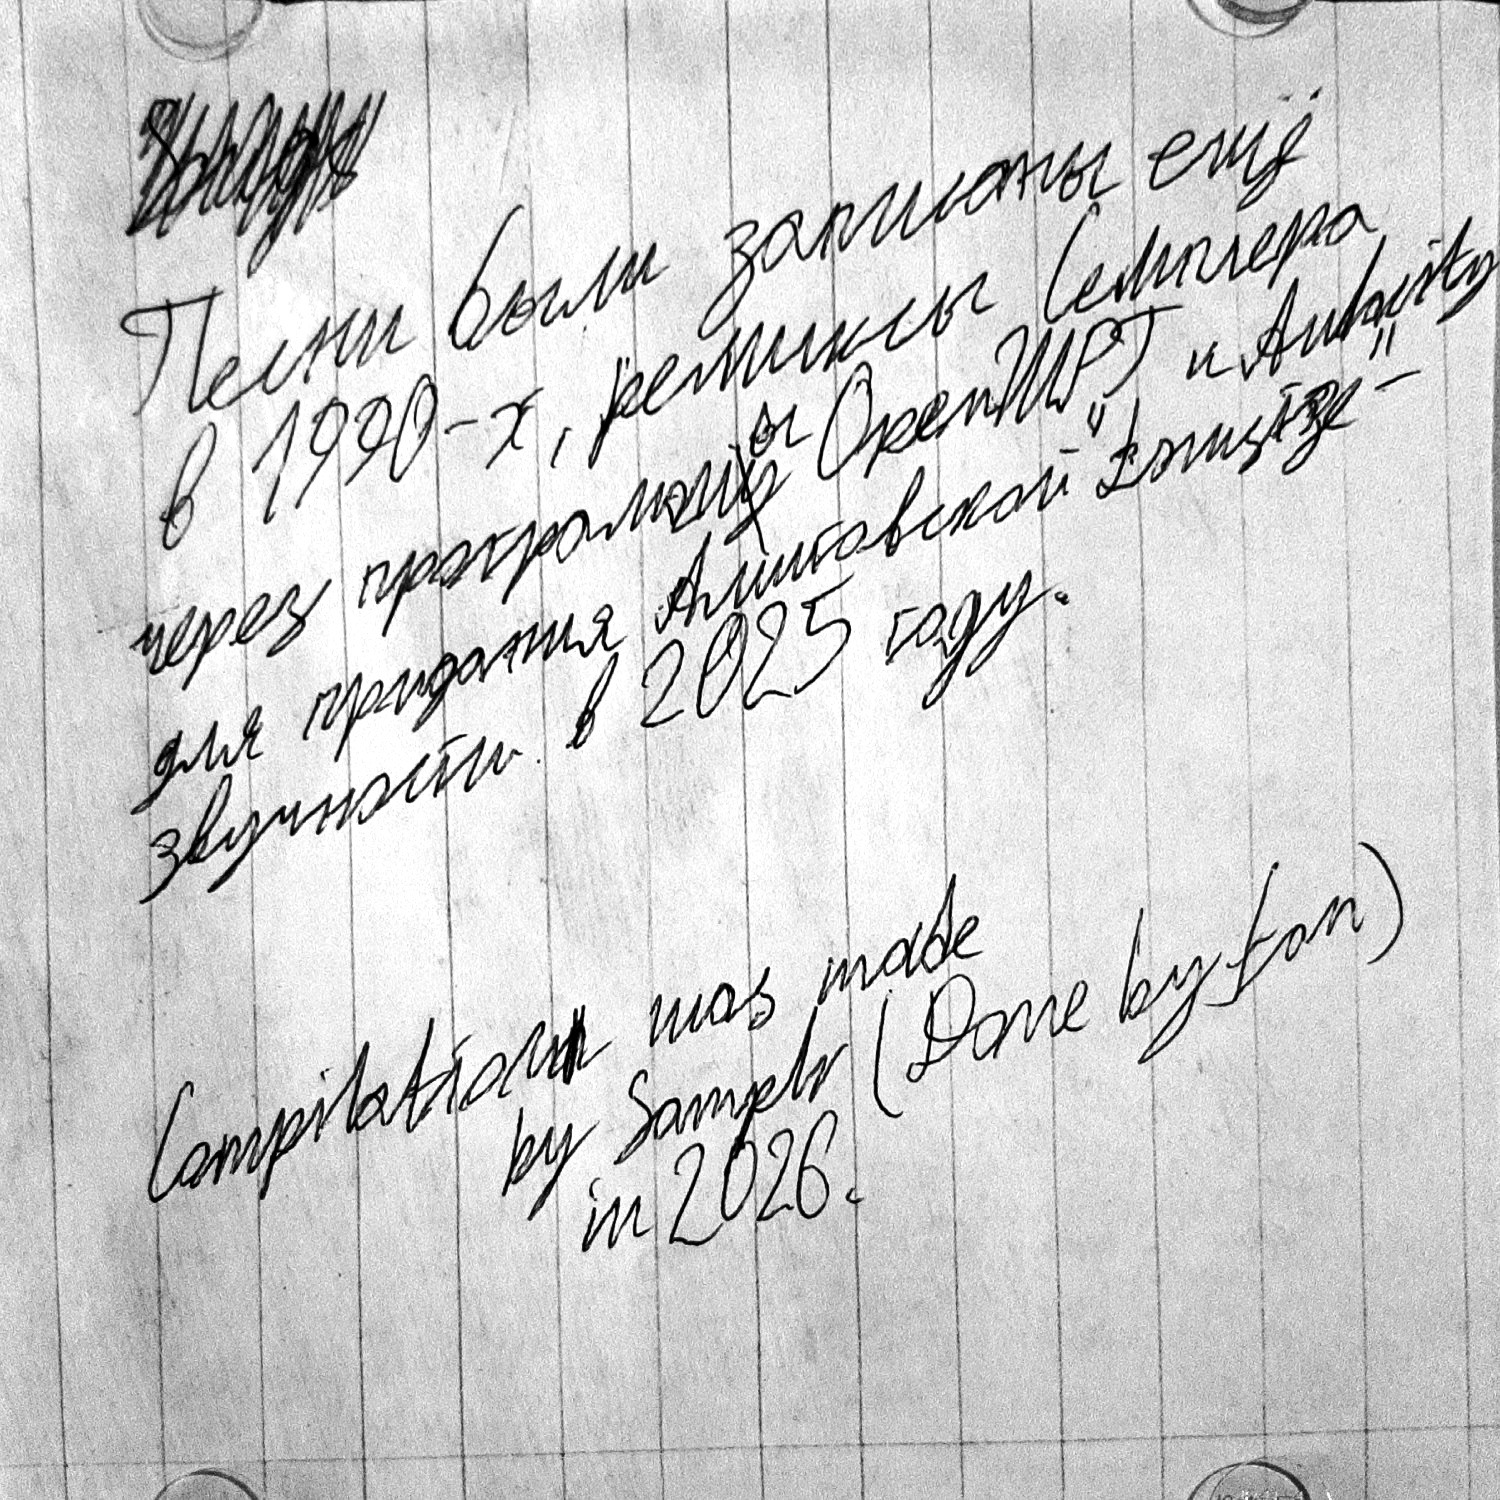 Песни были записаны ещё
в 1990-х, ремиксы Семплера
через программы OpenMPT и Audacity
для придания Амиговской
звучности в 2025 году.
Compilation was made
by Samplr (Done byton)
in 2026.